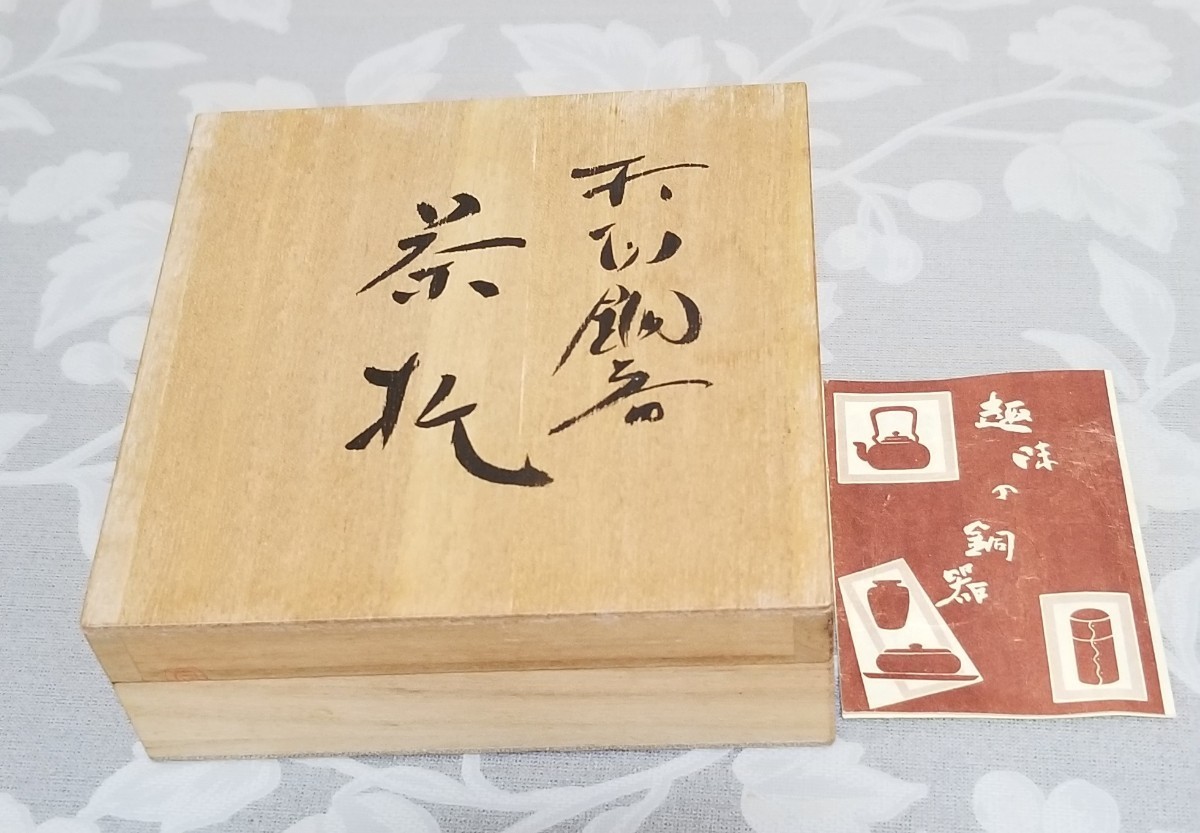 銅器
茶托
趣味の銅器